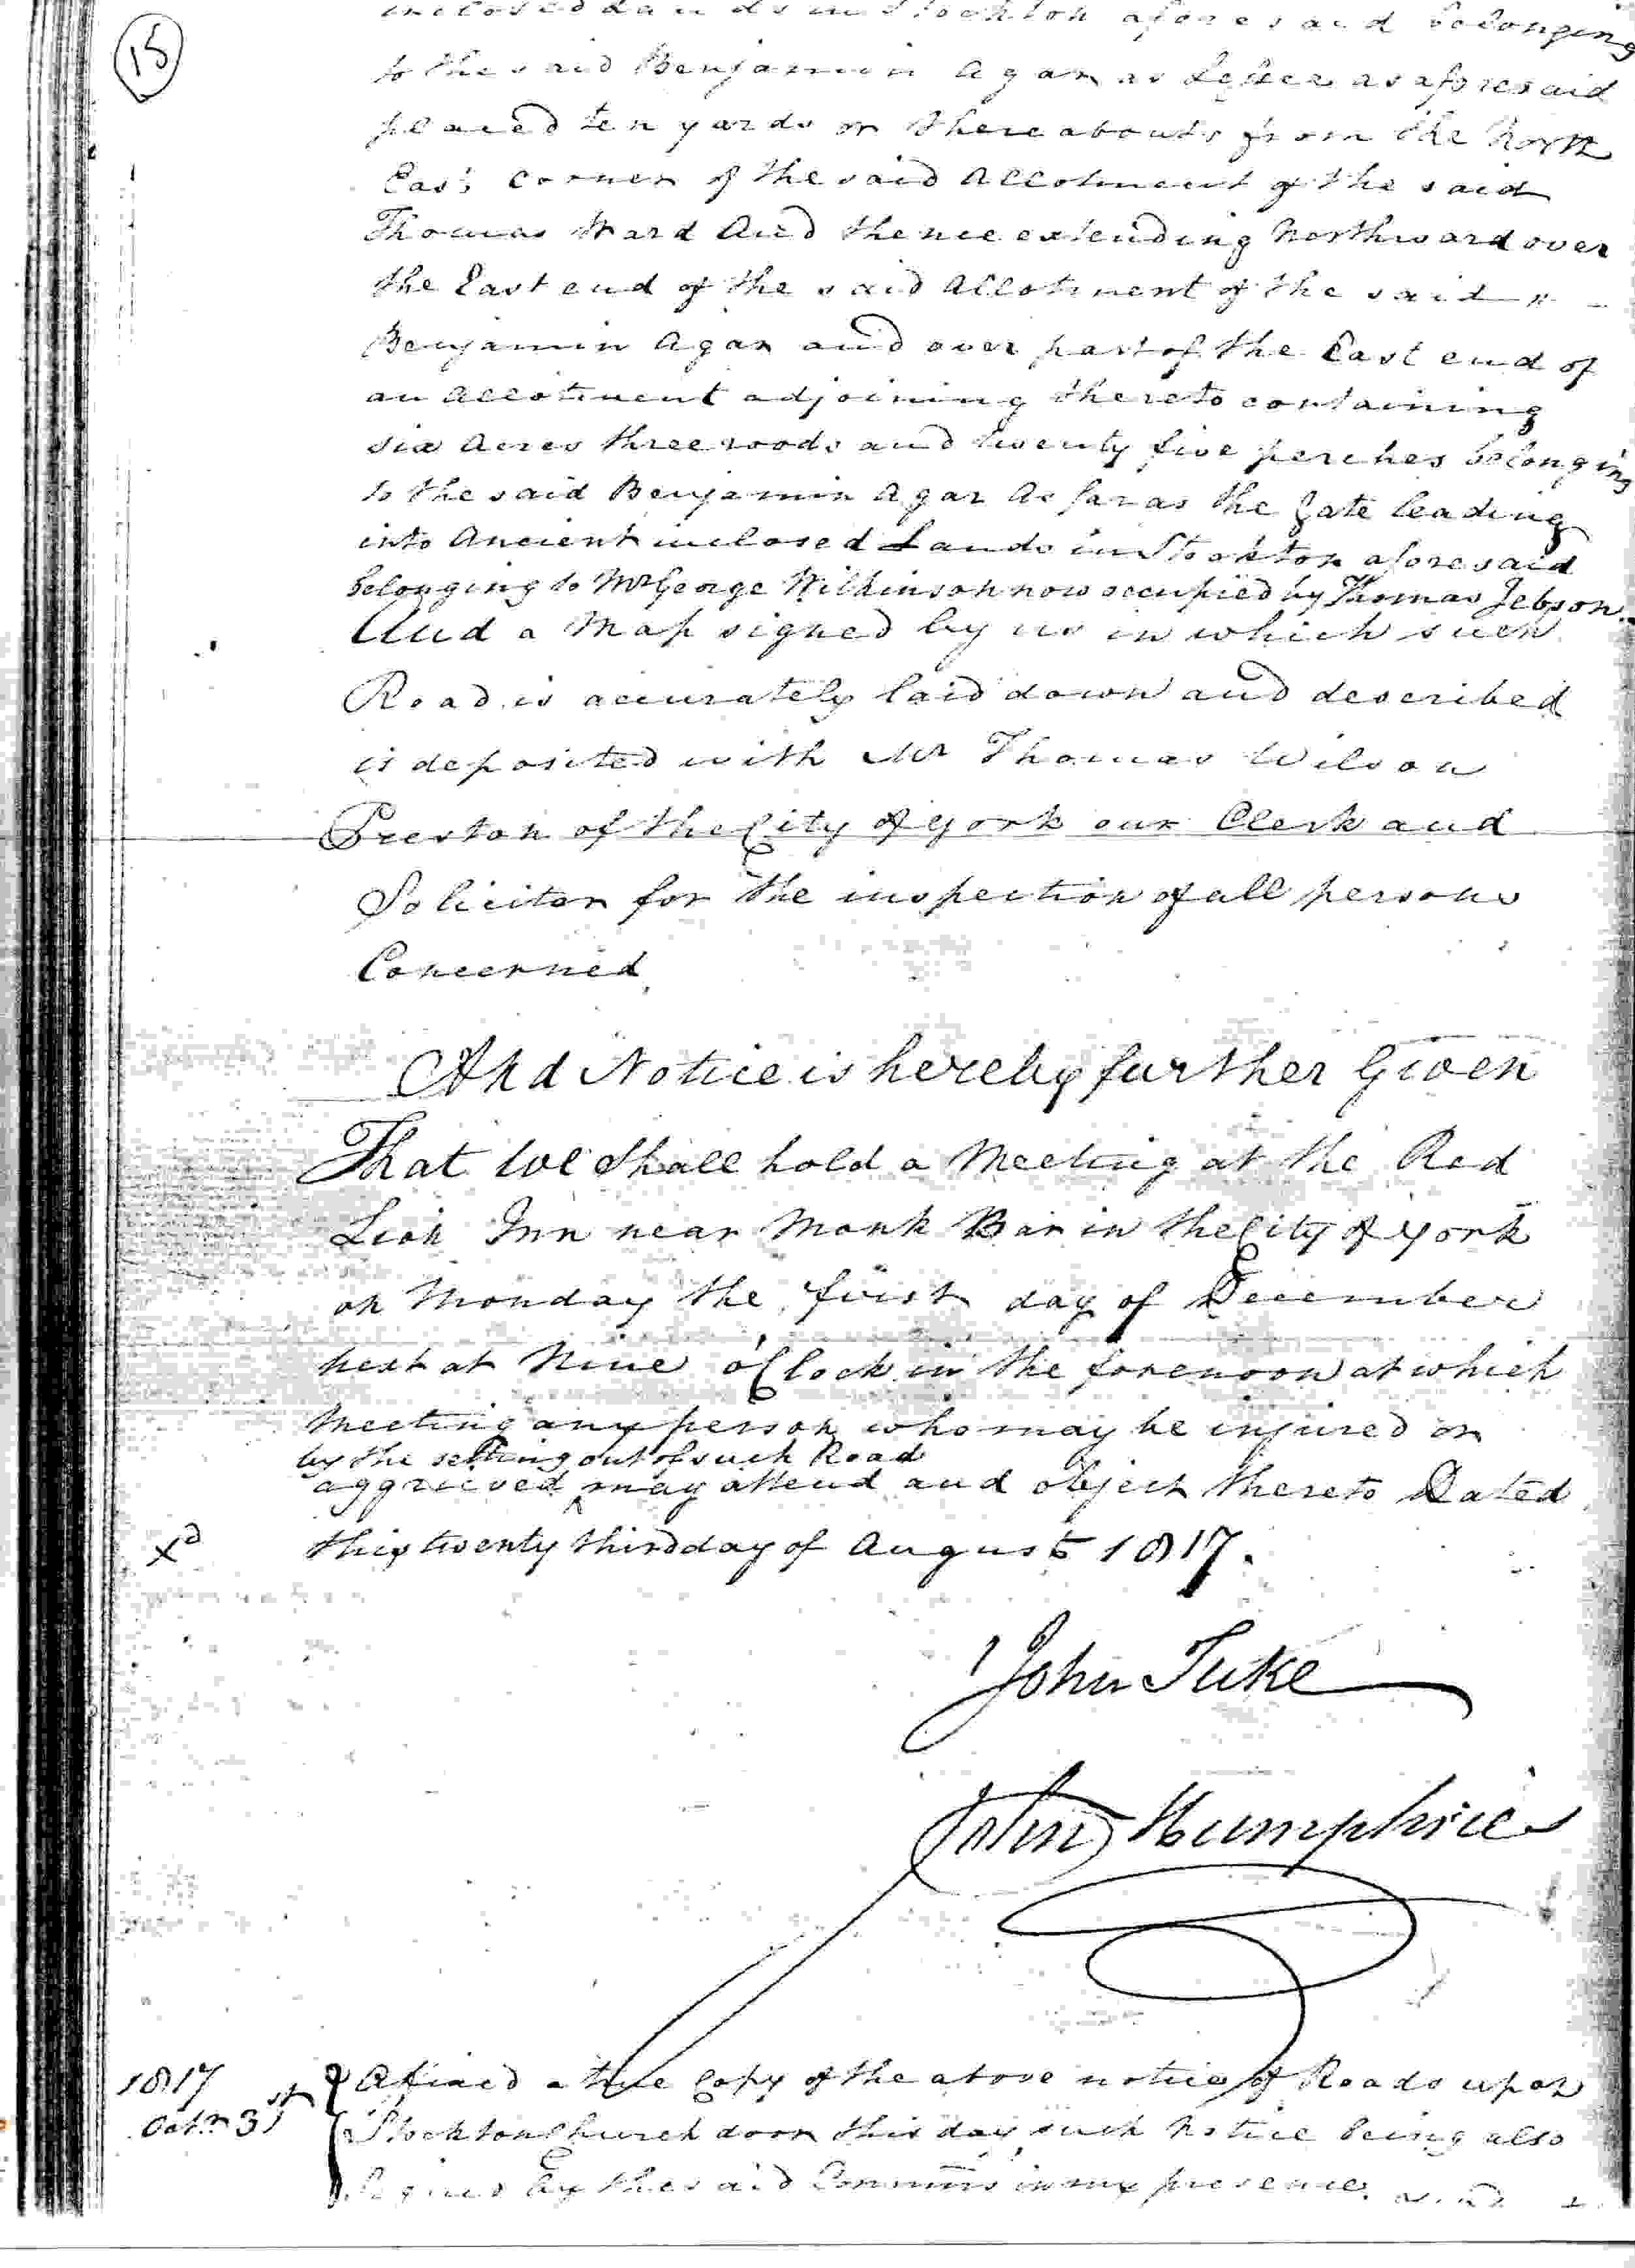 15
inclosed Lands in Stockton aforesaid belonging
to the said Benjamin Agar as Lessee as aforesaid
placed ten yards or thereabouts from the North
East corner of the said Allotment of the said
Thomas Ward And thence extending Northward over
the East end of the said Allotment of the said
Benjamin Agar and over part of the East end of
an allotment adjoining thereto containing
six Acres three roods and twenty five perches belonging
to the said Benjamin Agar As far as the Gate leading
into Ancient inclosed Lands in Stockton aforesaid
belonging to Mr George Wilkinson now occupied by Thomas Jebson.
And a Map signed by us in which such
Road is accurately laid down and described
is deposited with Mr Thomas Wilson
Preston of the City of York our Clerk and
Solicitor for the inspection of all persons
Concerned
And Notice is hereby further Given
That We Shall hold a Meeting at the Red
Lion Inn near Monk Bar in the City of York
on Monday the first day of December
next at Nine o'Clock in the forenoon at which
Meeting any person who may be injured or
by the setting out of such Road
aggrieved ^ may attend and object thereto Dated
this twenty third day of August 1817.
xd
John Tuke
John Humphries
1817
Octr 31st
Afixed a true Copy of the above notice of Roads upon
Stockton Church door this day such Notice being also
signed by the said Commrs in my presence.